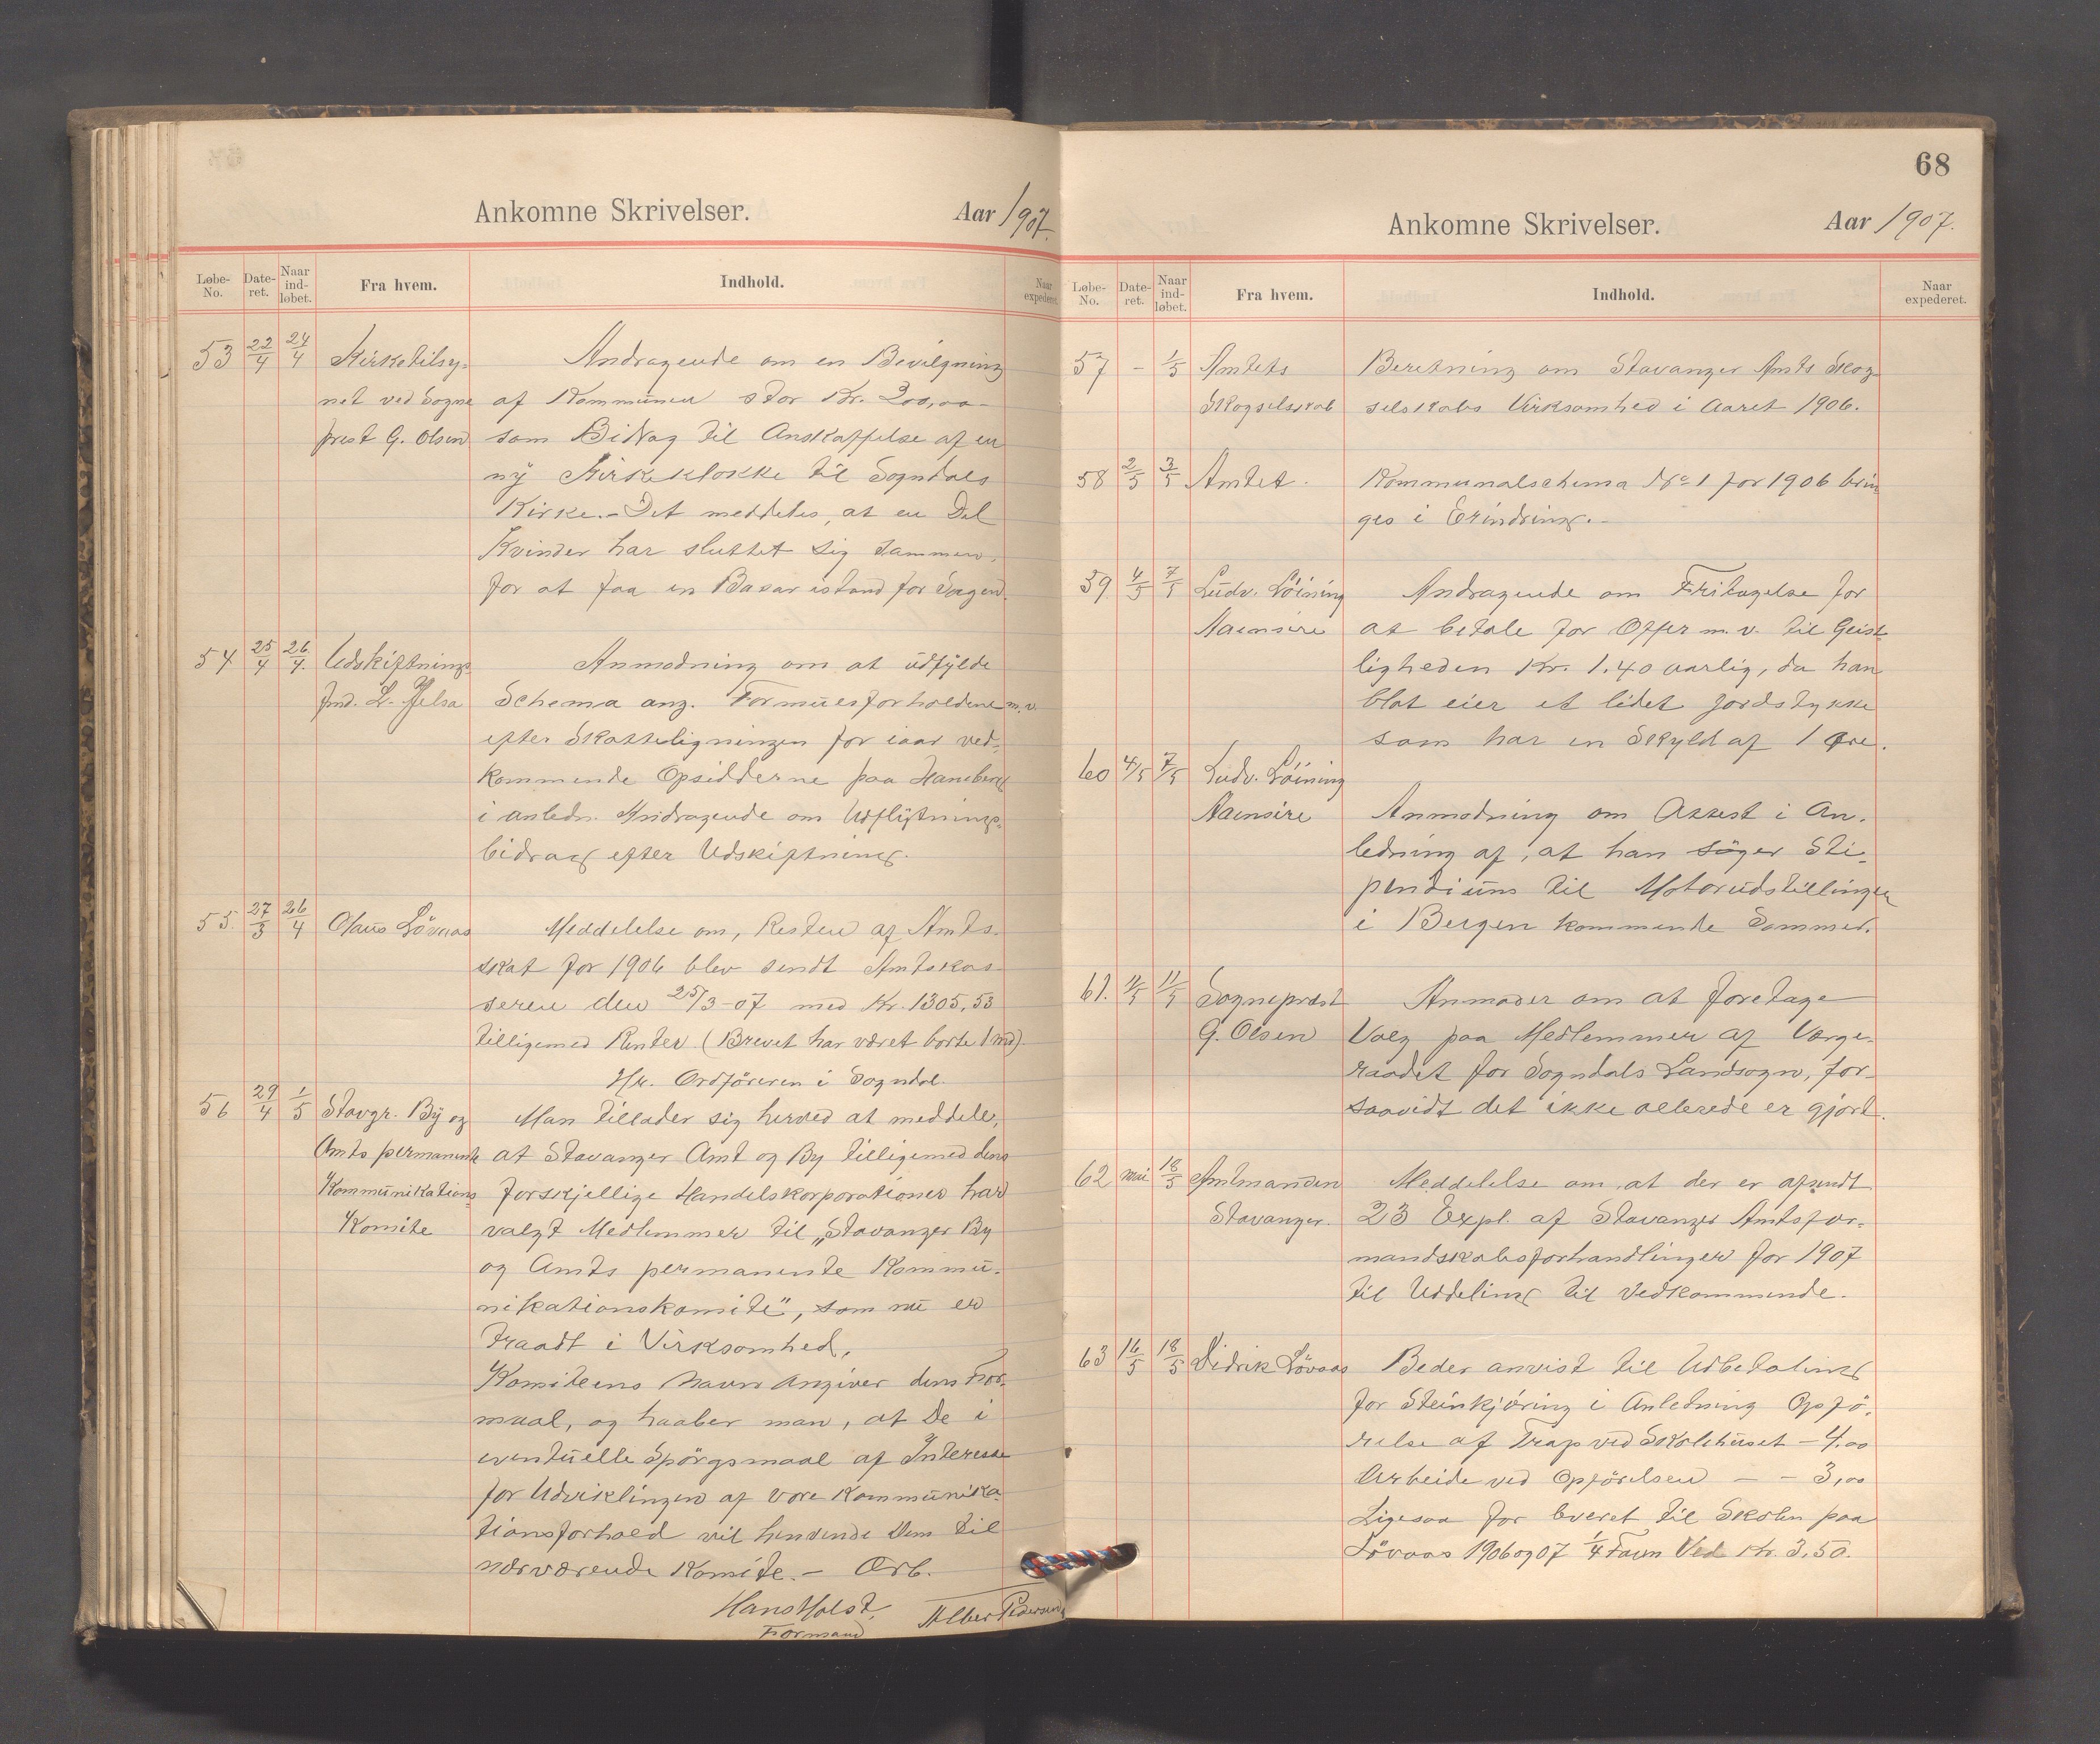 Ankomne Skrivelser. Aar 1907.
Løbe-No. Date-ret. Naar ind-løbet. Fra hvem. Indhold. Naar expederet.
53 22/4 24/4 Kirketilsy- Andragende om en Bevilgning
net ved Sogne af Kommunen stor Kr. 200,00
prest G. Olsen som Bidrag til Anskaffelse af en
ny Kirkeklokke til Sogndals
Kirke. - Det meddeles, at en Del
Kvinder har sluttet sig sammen
for at faa en Basar istand for Sagen.
54 25/4 26/4 Udskiftnings- Anmodning om at udfylde
fmd. L. Jelsa Schema ang. Formuesforholdene m.v.
efter Skatteligningen for iaar ved-
kommende Opsidderne paa Haneberg
i anledn. Andragende om Udflytnings-
bidrag efter Udskiftning.
55. 27/3 26/4 Olaus Lövaas Meddelelse om, Resten af Amts-
skat for 1906 blev sendt Amtskas-
seren den 25/3-07 med Kr. 1305,53
tilligemed Renter. (Brevet har været borte 1 md).
Hr. Ordföreren i Sogndal.
56 29/4 1/5 Stavgr. By og Man tillader sig herved at meddele,
Amts permanente at Stavanger Amt og By tilligemed dens
Kommunikations- forskjellige Handelskorporationer har
Komite valgt Medlemmer til „Stavanger By
og Amts permanente Kommu-
nikationskomite", som nu er
traadt i Virksomhed.
Komiteens Navn angiver dens For-
maal, og haaber man, at De i
eventuelle Spörgsmaal af Interesse
for Udviklingen af vore Kommunika-
tionsforhold vil henvende Dem til
nærværende Komite. - Ærb.
Hans Holst, Albert Pedersen
Formand
68
Ankomne Skrivelser. Aar 1907.
Løbe-No. Date-ret. Naar ind-løbet. Fra hvem. Indhold. Naar expederet.
57 - 1/5 Amtets Beretning om Stavanger Amts Skog-
Skogselskab selskabs Virksomhed i Aaret 1906.
58 2/5 3/5 Amtet. Kommunalschema No 1 for 1906 brin
ges i Erindring. -
59 4/5 7/5 Ludv. Löining Andragende om Fritagelse for
Aaensire at betale for Offer m.v. til Geist-
ligheden Kr. 1.40 aarlig, da han
blot eier et lidet Jordstykke
som har en Skyld af 1 Øre.
60 4/5 7/5 Ludv. Löining
Aaensire Anmodning om Attest i An-
ledning af, at han söger Sti-
pendium til Motorudstillingen
i Bergen kommende Sommer.
61. 11/5 11/5 Sogneprest Anmoder om at foretage
G. Olsen Valg paa Medlemmer af Værge-
raadet for Sogndals Landsogn, for-
saavidt det ikke allerede er gjort.
62 mai 18/5 Amtmanden Meddelelse om, at der er afsendt
Stavanger. 23 Expl. af Stavanger Amtsfor-
mandskabsforhandlinger for 1907
til Uddeling til Vedkommende.
63 16/5 18/5 Didrik Lövaas Beder anvist til Udbetaling
for Steinkjöring i Anledning Opfö-
relse af Trap ved Skolehuset - 4,00
Arbeide ved Opförelsen - - 3,00
Ligesaa for leveret til Skolen paa
Lövaas 1906 og 07 1/4 Favn Ved Kr. 3,50.